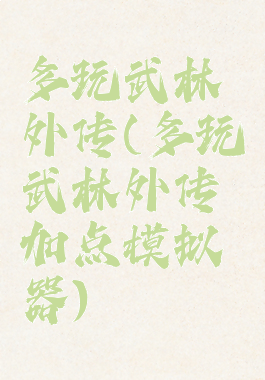 多玩武林
外传(多玩
武林外传
加点模拟
器)